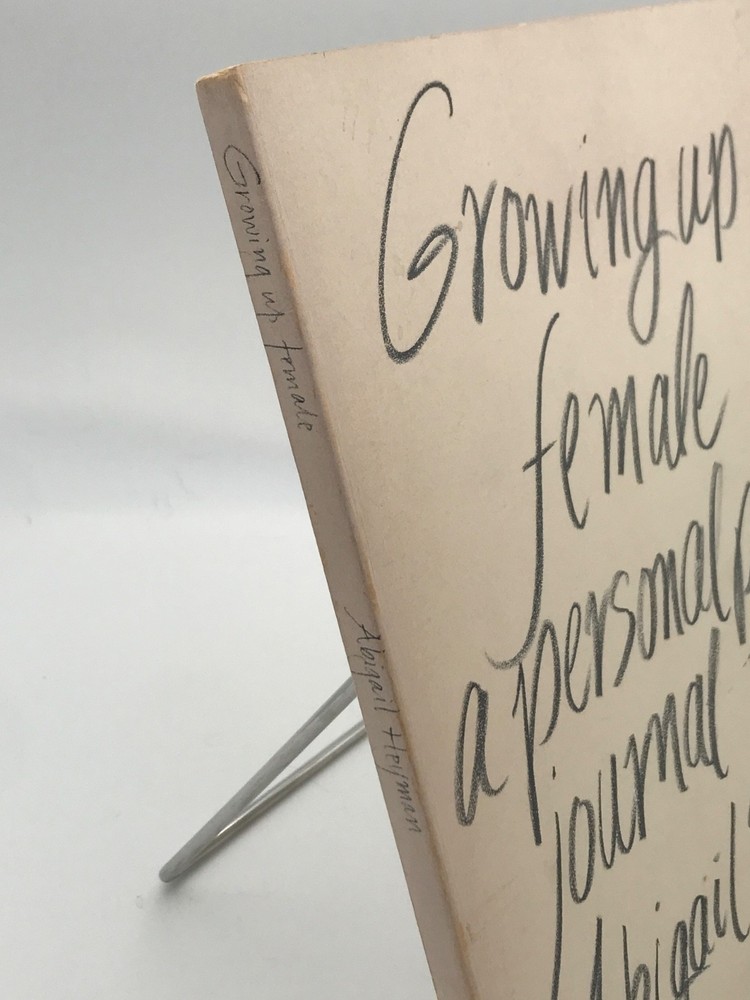 Growing up female
Abigail Heyman
Growing up
female
a personal
journal
Abigail